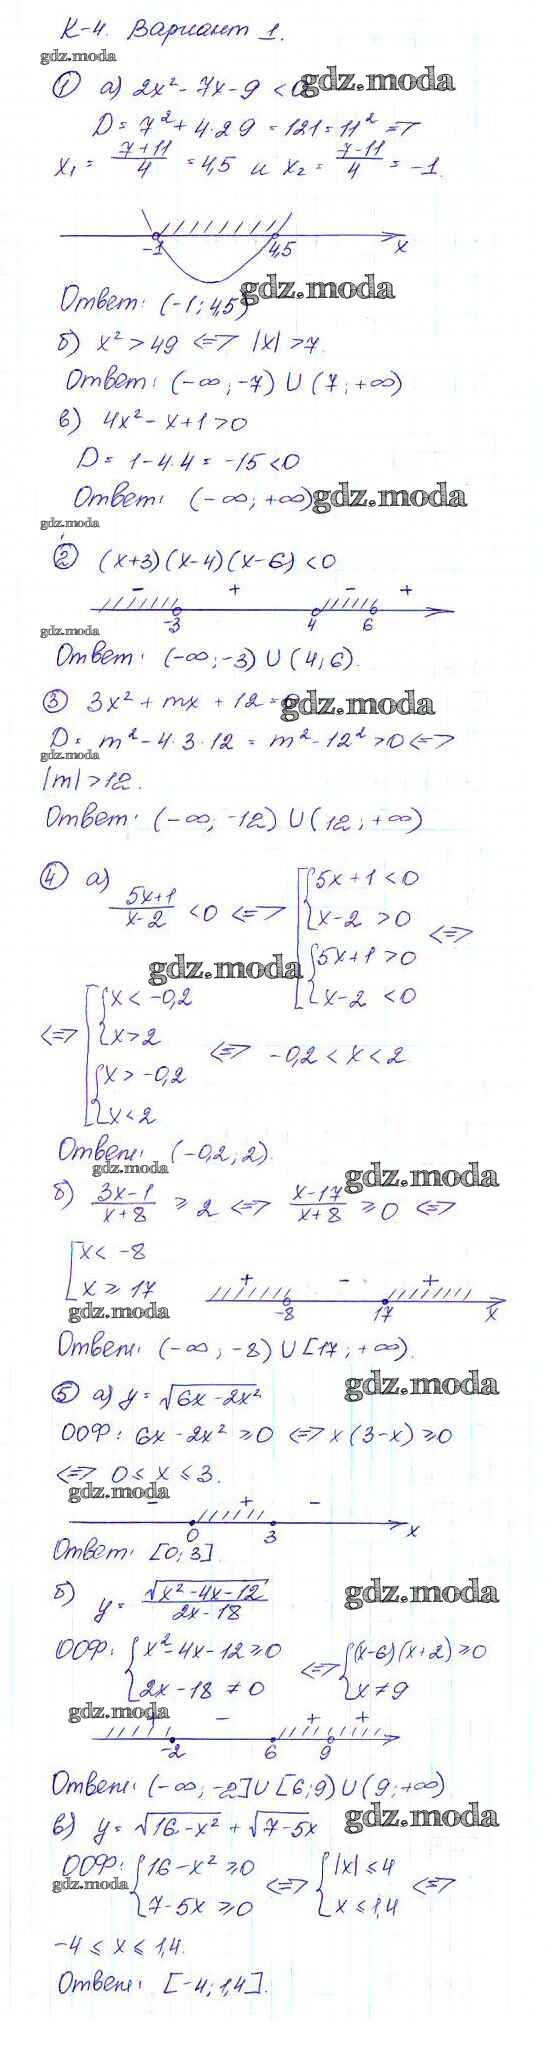 К-4. Вариант 1.
gdz.moda
① а) 2x² - 7x - 9 < 0
gdz.moda
D = 7² + 4·2 9 = 121 = 11² =>
x₁ = (7+11)/4 = 4,5 и x₂ = (7-11)/4 = -1.
-1 4,5 x
Ответ: (-1; 4,5)
gdz.moda
б) x² > 49 <=> |x| > 7.
Ответ: (-∞; -7) ∪ (7; +∞)
в) 4x² - x + 1 > 0
D = 1 - 4·4 = -15 < 0
Ответ: (-∞; +∞)
gdz.moda
gdz.moda
② (x+3)(x-4)(x-6) < 0
- + - +
-3 4 6
gdz.moda
Ответ: (-∞; -3) ∪ (4; 6).
③ 3x² + mx + 12 =
gdz.moda
D = m² - 4·3·12 = m² - 12² > 0 <=>
gdz.moda
|m| > 12.
Ответ: (-∞; -12) ∪ (12; +∞)
④ а) (5x+1)/(x-2) < 0 <=> [ { 5x+1 < 0
x-2 > 0
{ 5x+1 > 0
x-2 < 0 <=>
gdz.moda
<=> [ { x < -0,2
x > 2
{ x > -0,2
x < 2 <=> -0,2 < x < 2
Ответ: (-0,2; 2).
gdz.moda
gdz.moda
б) (3x-1)/(x+8) ≥ 2 <=> (x-17)/(x+8) ≥ 0 <=>
[ x < -8
x ≥ 17
+ - +
-8 17 x
gdz.moda
Ответ: (-∞; -8) ∪ [17; +∞).
⑤ а) y = √(6x - 2x²)
gdz.moda
ООФ: 6x - 2x² ≥ 0 <=> x(3-x) ≥ 0
<=> 0 ≤ x ≤ 3.
gdz.moda
- + -
0 3 x
Ответ: [0; 3].
б) y = √(x² - 4x - 12)/(2x - 18)
gdz.moda
ООФ: { x² - 4x - 12 ≥ 0
2x - 18 ≠ 0 <=> { (x-6)(x+2) ≥ 0
x ≠ 9
gdz.moda
+ - + +
-2 6 9
Ответ: (-∞; -2] ∪ [6; 9) ∪ (9; +∞)
в) y = √(16 - x²) + √(7-5x)
gdz.moda
ООФ: { 16 - x² ≥ 0
7 - 5x ≥ 0 <=> { |x| ≤ 4
x ≤ 1,4 <=>
gdz.moda
-4 ≤ x ≤ 1,4.
Ответ: [-4; 1,4].